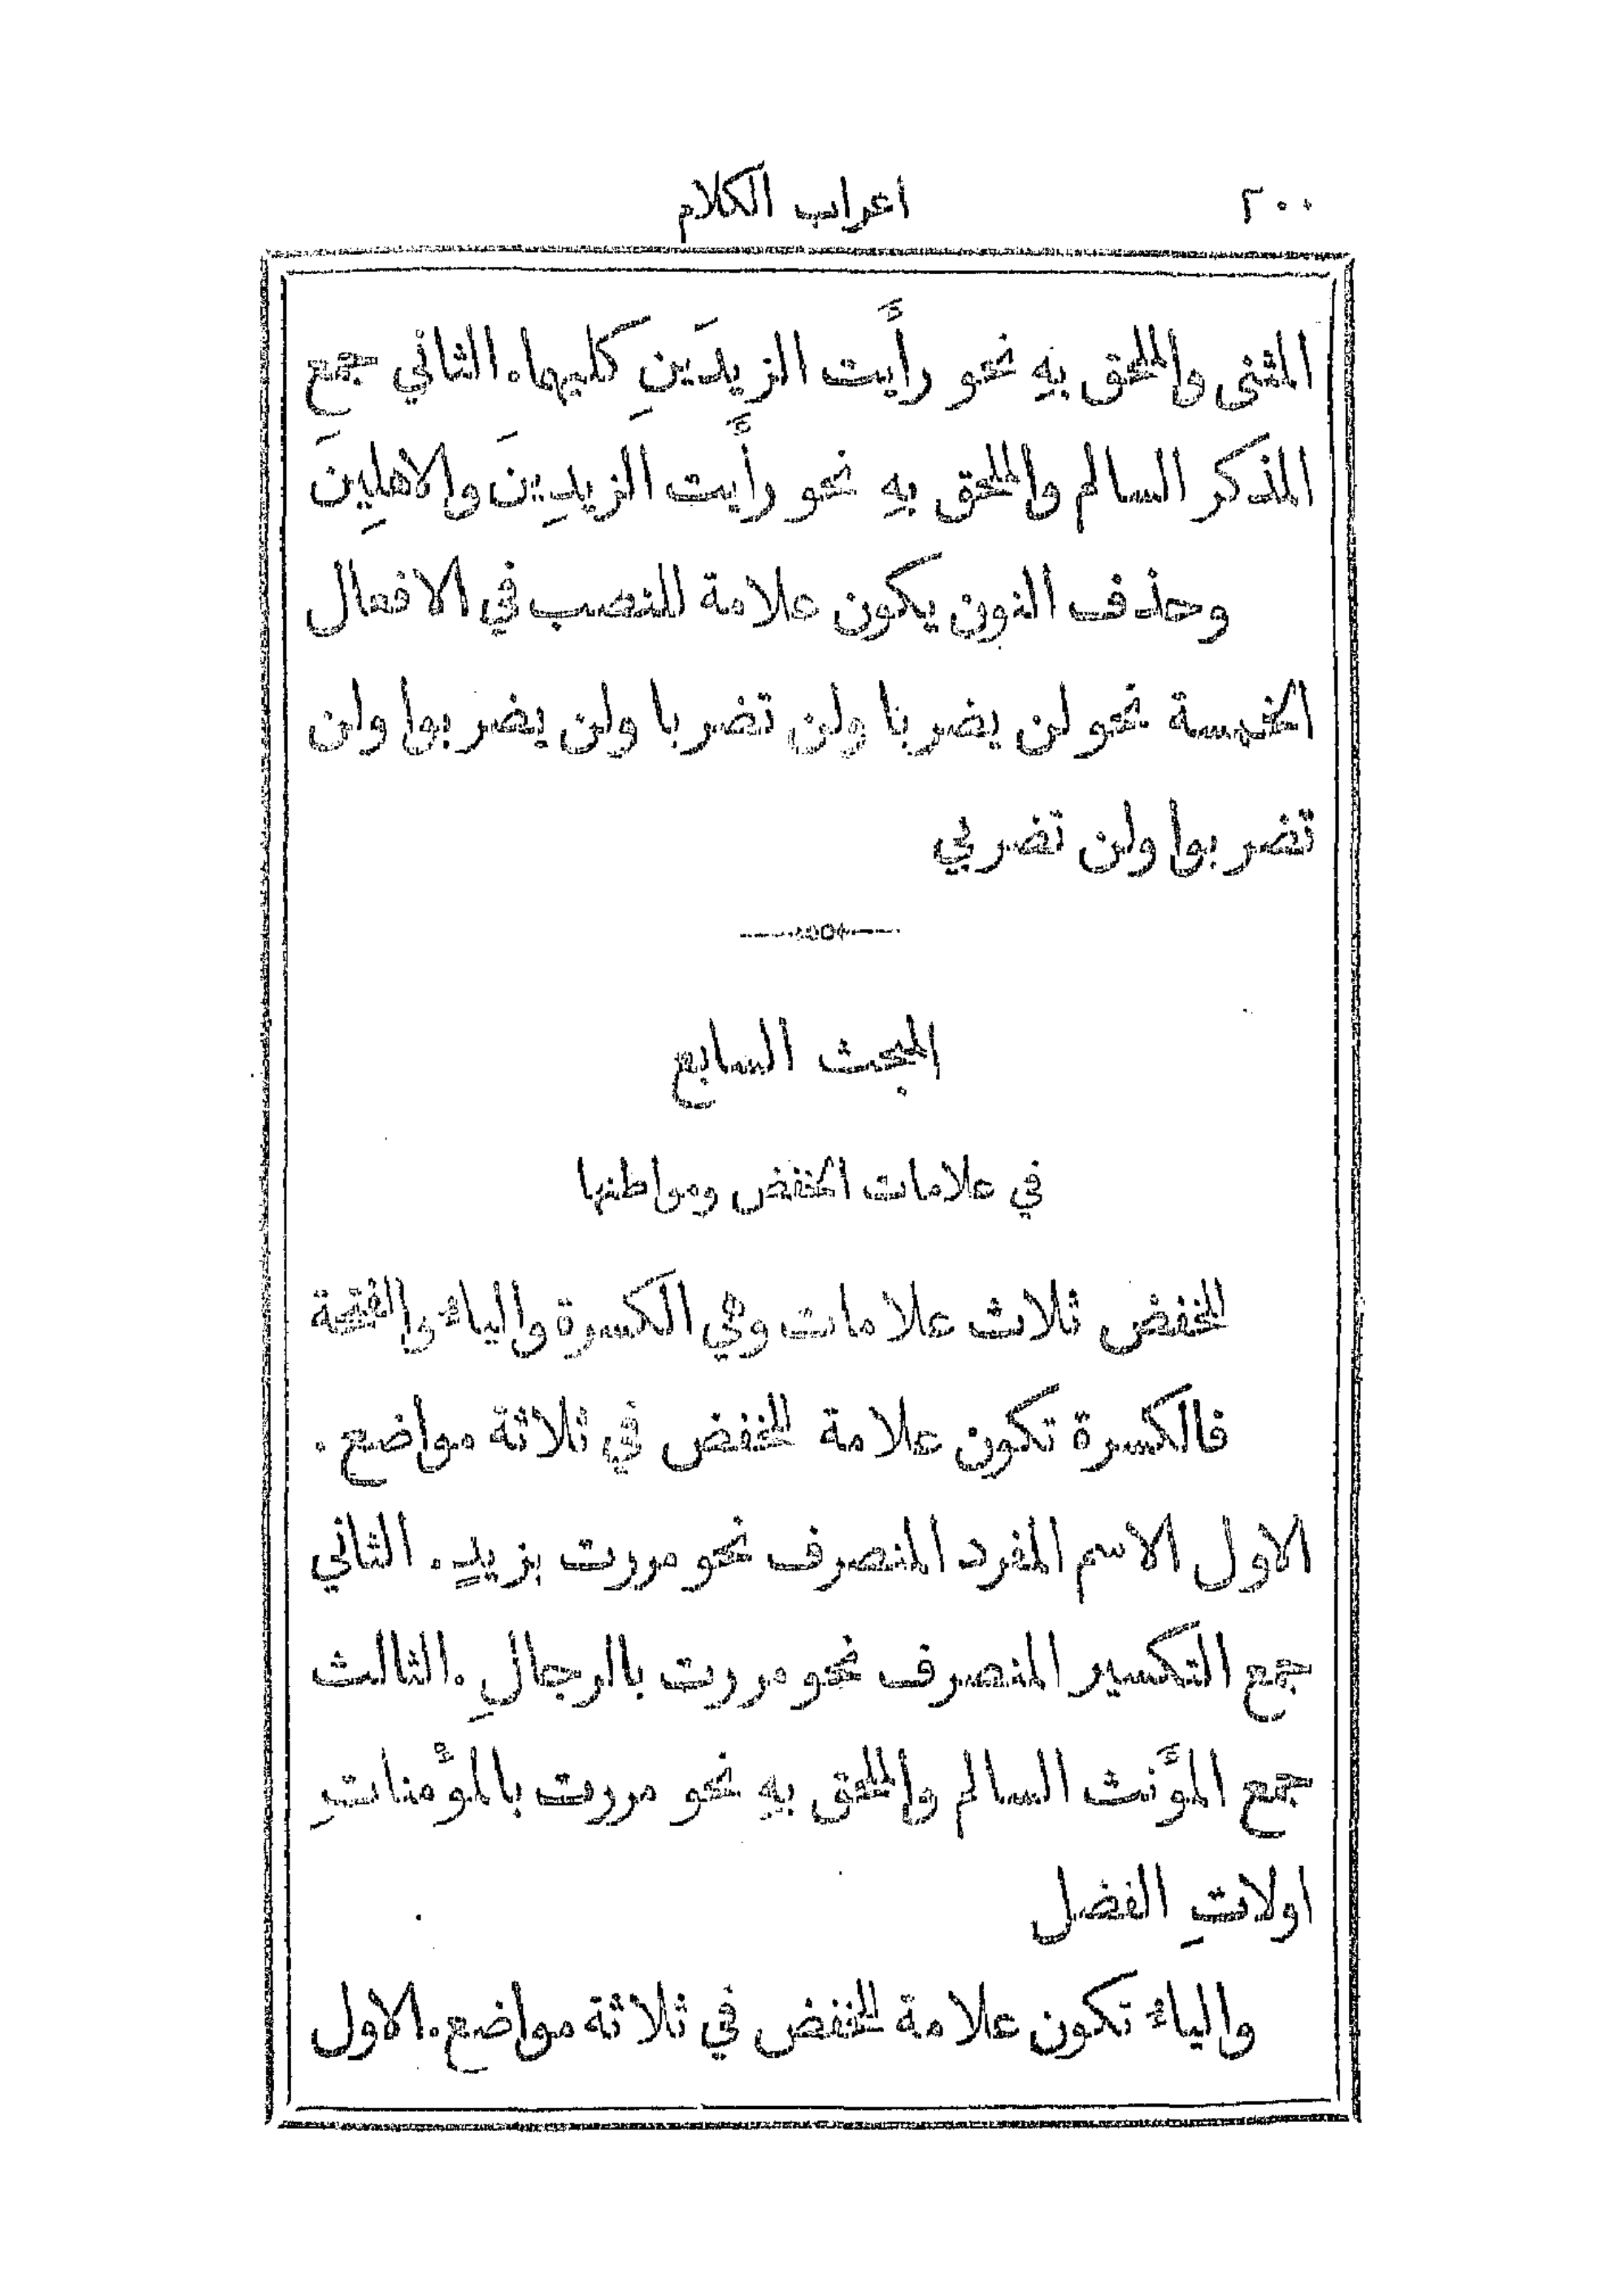 ٢٠٠ اعراب الكلام
المثنى والملحق بهِ نحو رأَيت الزيدَينِ كليهما. الثاني جمع
المذكر السالم والملحق بهِ نحو رأَيت الزيدِينَ والاهلِينَ
وحذف النون يكون علامة للنصب في الافعال
الخمسة نحو لن يضربا ولن تضربا ولن يضربوا ولن
تضربوا ولن تضربي
المبحث السابع
في علامات الخفض ومواطنها
للخفض ثلاث علامات وهي الكسرة والياء والفتحة
فالكسرة تكون علامة للخفض في ثلاثة مواضع.
الاول الاسم المفرد المنصرف نحو مررت بزيدٍ. الثاني
جمع التكسير المنصرف نحو مررت بالرجالِ. الثالث
جمع المؤَنث السالم والملحق بهِ نحو مررت بالمؤْمناتِ
اولاتِ الفضل
والياء تكون علامة للخفض في ثلاثة مواضع. الاول